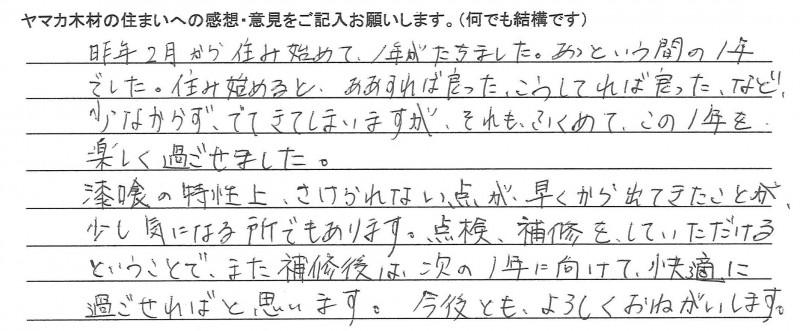 ヤマカ木材の住まいへの感想・意見をご記入お願いします。(何でも結構です)
昨年2月から住み始めて、1年がたちました。あっという間の1年
でした。住み始めると、ああすれば良った、こうしてれば良った、など、
少なからず、でてきてしまいますが、それも、ふくめて、この1年を
楽しく過ごせました。
漆喰の特性上、さけられない点が、早くから出てきたことが、
少し気になる所でもあります。点検、補修を、していただける
ということで、また補修後は、次の1年に向けて、快適に
過ごせればと思います。 今後とも、よろしくおねがいします。